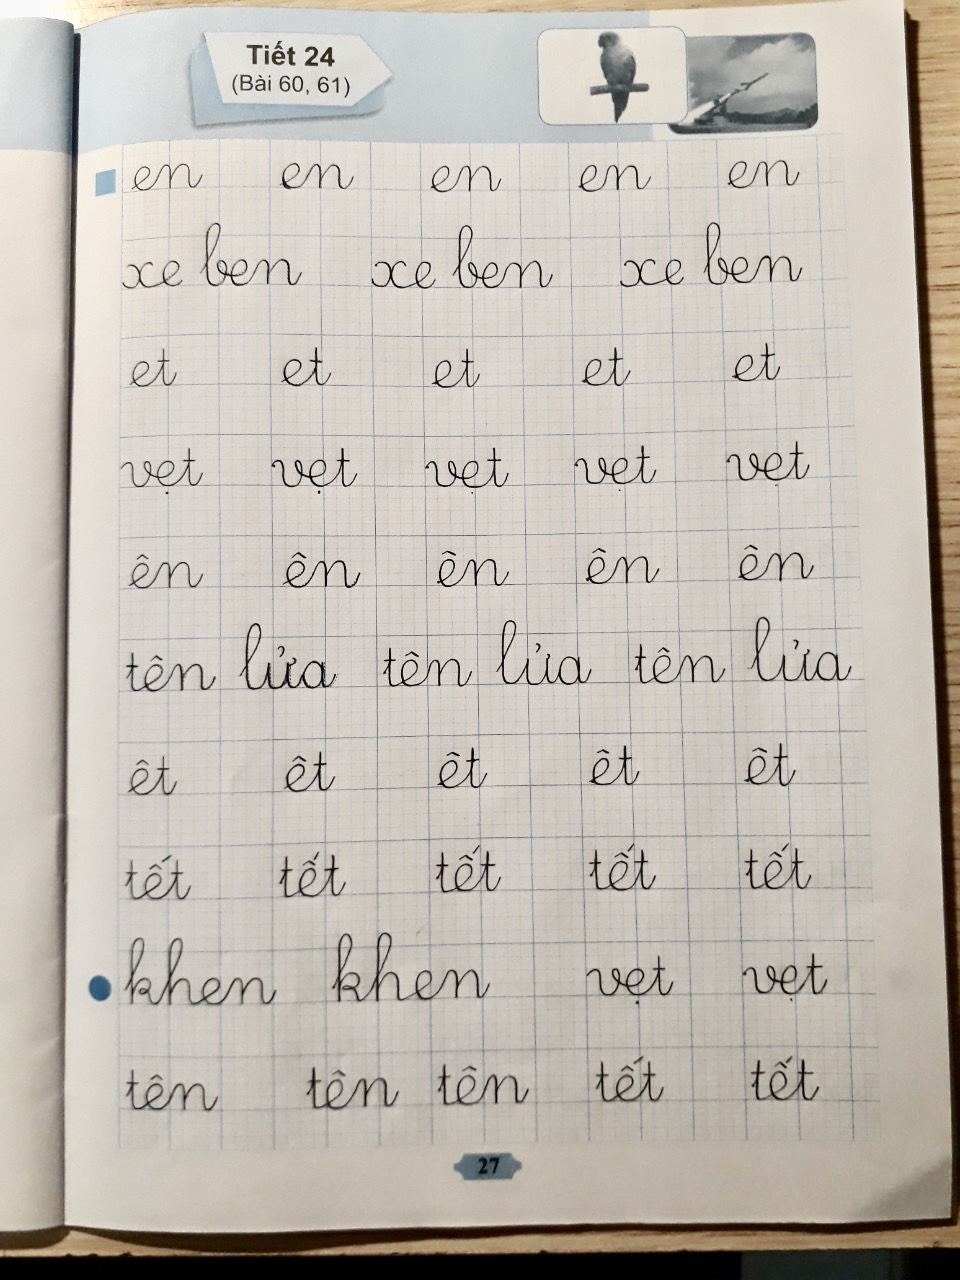 Tiết 24
(Bài 60, 61)
en en en en en
xe ben xe ben xe ben
et et et et et
vẹt vẹt vẹt vẹt vẹt
ên ên ên ên ên
tên lửa tên lửa tên lửa
êt êt êt êt êt
tết tết tết tết tết
khen khen vẹt vẹt
tên tên tên tết tết
27